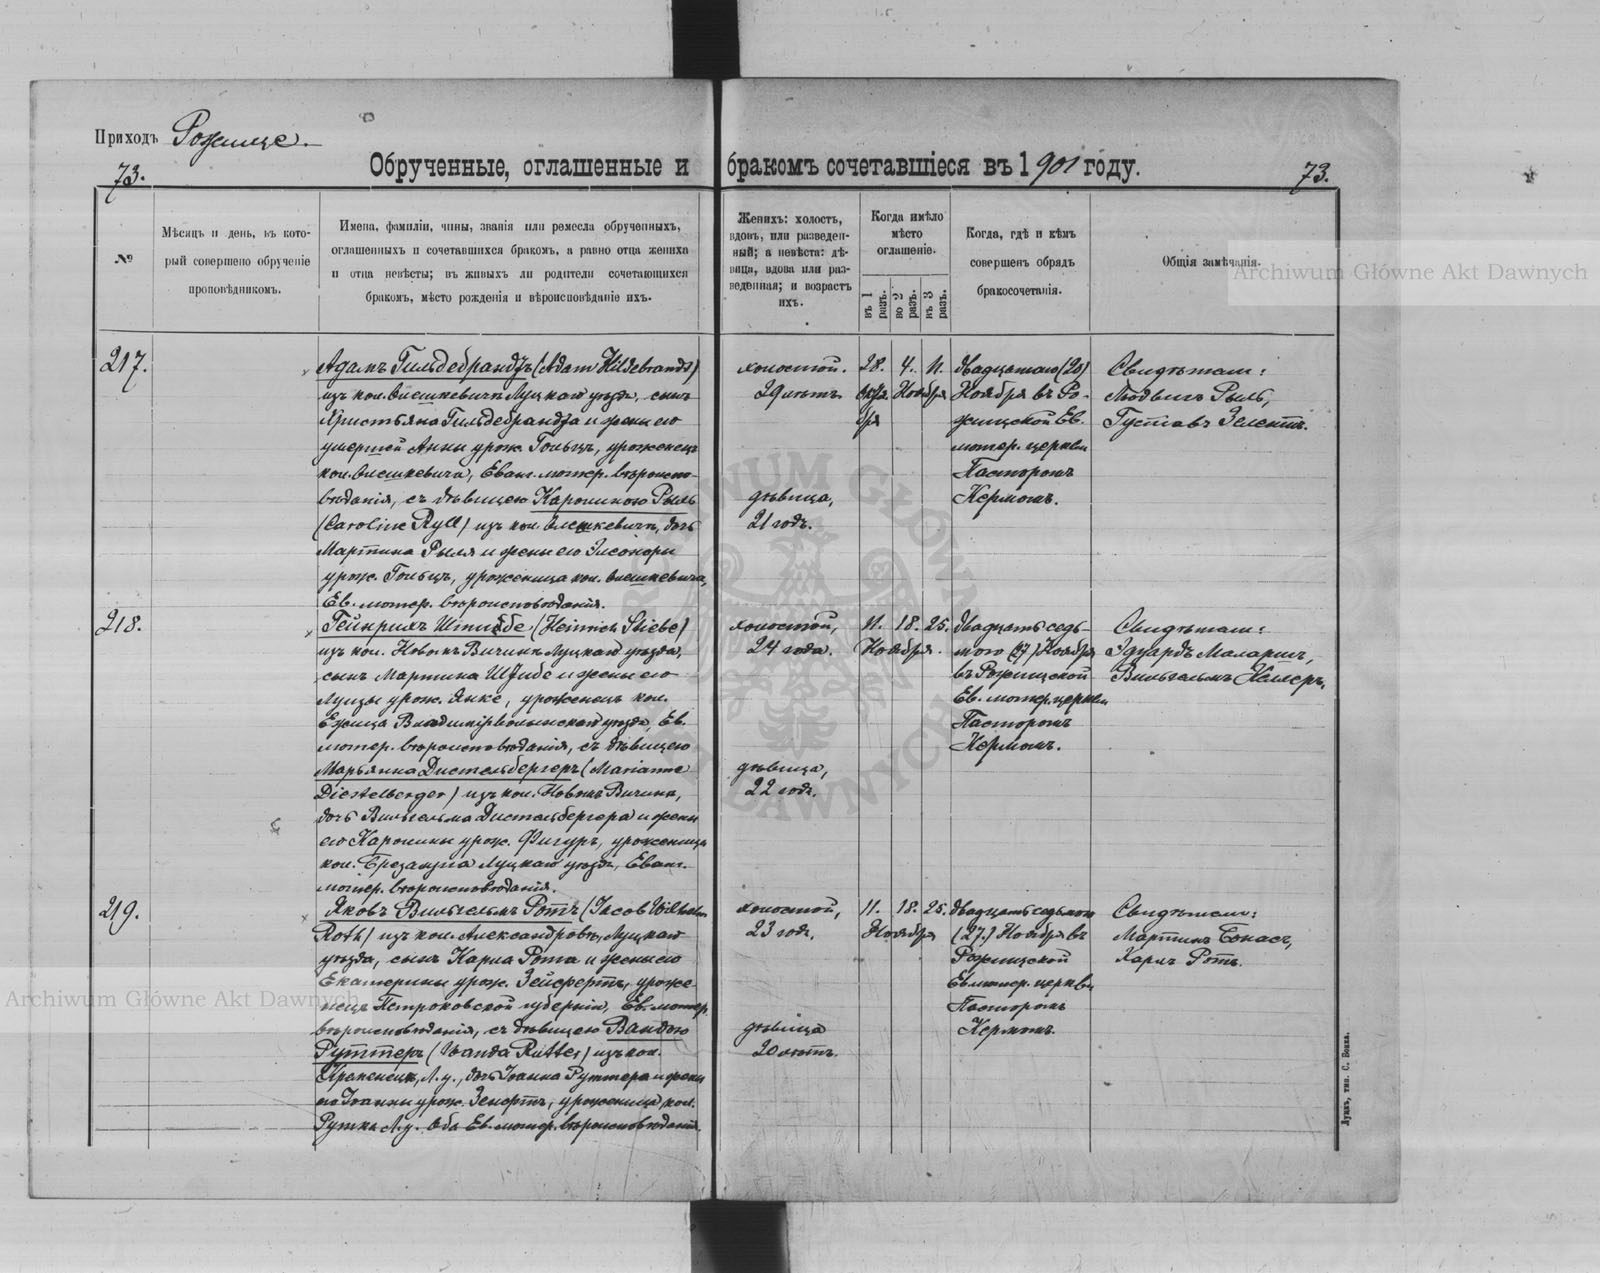 Приходъ Рожище.
73.
Обрученные, оглашенные и бракомъ сочетавшіеся въ 1901 году.
73.
№
Мѣсяцъ и день, въ кото-
рый совершено обрученіе
проповѣдникомъ.
Имена, фамиліи, чины, званія или ремесла обрученныхъ,
оглашенныхъ и сочетавшихся бракомъ, а равно отца жениха
и отца невѣсты; въ живыхъ ли родители сочетающихся
бракомъ, мѣсто рожденія и вѣроисповѣданіе ихъ.
Женихъ: холостъ,
вдовъ, или разведен-
ный; а невѣста: дѣ-
вица, вдова или раз-
веденная; и возрастъ
ихъ.
Когда имѣло
мѣсто
оглашеніе.
въ 1 разъ.
во 2 разъ.
въ 3 разъ.
Когда, гдѣ и кѣмъ
совершенъ обрядъ
бракосочетанія.
Общія замѣчанія.
Archiwum Główne Akt Dawnych
217.
Адамъ Гильдебрандъ (Adam Hildebrandt)
изъ кол. Олешкевичи Луцкаго уѣзда, сынъ
Христьяна Гильдебранда и жены его
умершей Анны урож. Гольцъ, уроженецъ
кол. Олешкевичи, Еванг. лютер. вѣроиспо-
вѣданія, съ дѣвицею Каролиною Рыль
(Caroline Ryll) изъ кол. Олешкевичи, дочь
Мартина Рыля и жены его Элеоноры
урож. Гольцъ, уроженица кол. Олешкевичи,
Ев. лютер. вѣроисповѣданія.
холостой.
29 лѣтъ.
дѣвица,
21 годъ.
28. 4. 11.
Октя Ноября
бря
двадцатаго (20)
Ноября въ Ро-
жищской Ев.
лютер. церкви
Пасторомъ
Кермомъ.
Свидѣтели:
Людвигъ Рыль,
Густавъ Зелентъ.
218.
Гейнрихъ Штибе (Heinrich Stiebe)
изъ кол. Новыхъ Вичинъ Луцкаго уѣзда,
сынъ Мартина Штибе и жены его
Луизы урож. Янке, уроженецъ кол.
Владимірволынскаго уѣзда, Ев.
лютер. вѣроисповѣданія, съ дѣвицею
Марьянна Дистельбергеръ (Marianne
Diestelberger) изъ кол. Новыхъ Вичинъ,
дочь Вильгельма Дистельбергера и жены
его Каролины урож. Фигуръ, уроженица
кол. Луцкаго уѣзда, Еванг.
лютер. вѣроисповѣданія.
холостой,
24 года.
дѣвица,
22 годъ.
11. 18. 25.
Ноября.
двадцать седь-
мого (27) Ноября
въ Рожищской
Ев. лютер. церкви
Пасторомъ
Кермомъ.
Свидѣтели:
Эдуардъ Маларинъ,
Вильгельмъ Келлеръ.
219.
Яковъ Вильгельмъ Ротъ (Jacob Wilhelm
Roth) изъ кол. Александровъ, Луцкаго
уѣзда, сынъ Карла Рота и жены его
Екатерины урож. Зейфертъ, уроже-
нецъ Петроковской губерніи, Ев. лютер.
вѣроисповѣданія, съ дѣвицею Вандою
Руттеръ (Wanda Rutter) изъ кол.
Кременецъ, Л. у., дочь Іоанна Руттера и жены
его Іоанны урож. уроженица кол.
Рутка Л. у. Оба Ев. лютер. вѣроисповѣданія.
холостой,
23 годъ.
дѣвица
20 лѣтъ.
11. 18. 25.
Ноября
двадцать седьмого
(27.) Ноября въ
Рожищской
Ев. лютер. церкви
Пасторомъ
Кермомъ.
Свидѣтели:
Мартинъ Бонасъ,
Карлъ Ротъ.
Archiwum Główne Akt Dawnych
Луцкъ, тип. С. Бокса.
ARCHIWUM GŁÓWNE AKT DAWNYCH